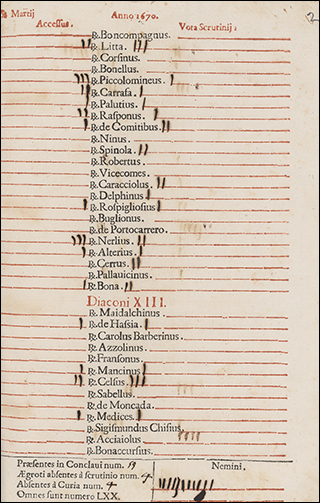 Martij Anno 1670.
Accessus. Vota Scrutinij:
℞. Boncompagnus.
℞. Litta.
℞. Corsinus.
℞. Bonellus.
℞. Piccolomineus.
℞. Carrafa.
℞. Palutius.
℞. Rasponus.
℞. de Comitibus.
℞. Ninus.
℞. Spinola.
℞. Robertus.
℞. Vicecomes.
℞. Caracciolus.
℞. Delphinus
℞. Rospigliosius
℞. Buglionus.
℞. de Portocarrero.
℞. Nerlius.
℞. Alterius.
℞. Cerrus.
℞. Pallauicinus.
℞. Bona.
Diaconi XIII.
℞. Maidalchinus.
℞. de Hassia.
℞. Carolus Barberinus.
℞. Azzolinus.
℞. Fransonus.
℞. Mancinus
℞. Celsus.
℞. Sabellus.
℞. de Moncada.
℞. Medices.
℞. Sigismundus Chisius.
℞. Acciaiolus
℞. Bonaccursius.
Præsentes in Conclaui num. Nemini.
Ægroti absentes à scrutinio num. 4
Absentes à Curia num. 4
Omnes sunt numero LXX.